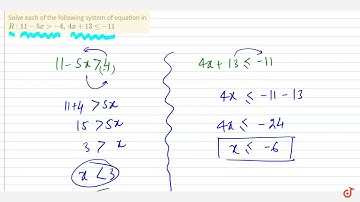 Solve each of the following system of equation in
R : 11 − 5x > −4, 4x + 13 ≤ −11
11 - 5x > (-4)
11+4 > 5x
15 > 5x
3 > x
x < 3
4x + 13 ≤ -11
4x ≤ -11 - 13
4x ≤ -24
x ≤ -6